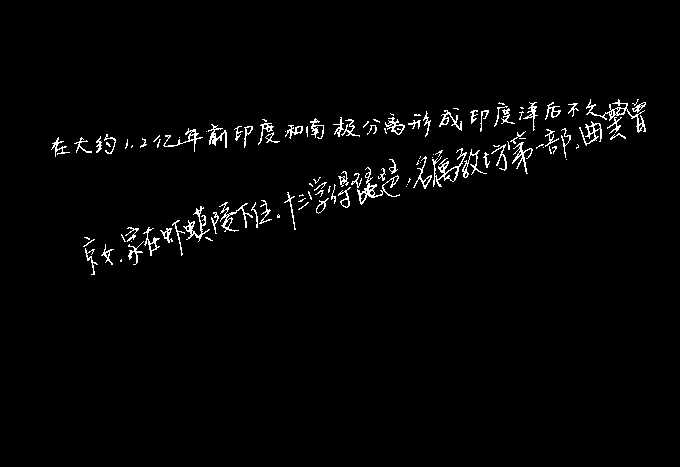 在大约1.2亿年前印度和南极分离形成印度洋后不久
京女,家在虾蟆陵下住。十三学得琵琶,名属教坊第一部。曲罢曾